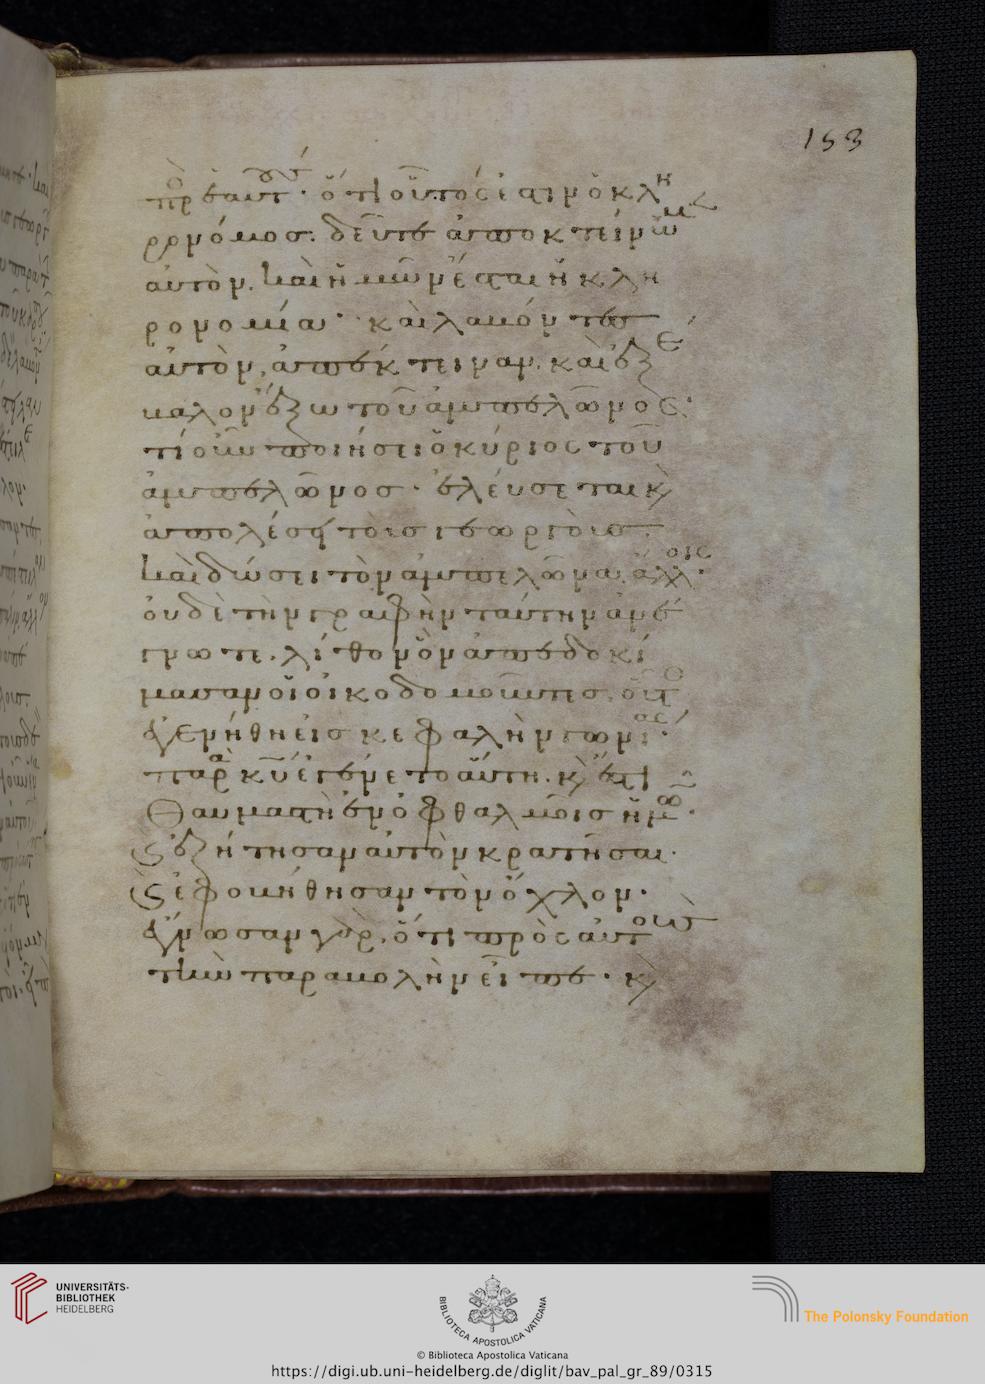 153
πρ ἑαυτούς· ὅτι οὗτός ἐστιν ὁ κλη
ρονόμος· δεῦτε ἀποκτείνωμεν
αὐτὸν. καὶ ἡμῶν ἔσται ἡ κλη
ρονομία· καὶ λαβόντες
αὐτὸν, ἀπέκτειναν. καὶ ἐξέ
βαλον ἔξω τοῦ ἀμπελῶνος·
τί οὖν ποιήσει ὁ κύριος τοῦ
ἀμπελῶνος· ἐλεύσεται κὶ
ἀπολέσῃ τοὺς γεωργοὺς·
καὶ δώσει τὸν ἀμπελῶνα ἄλλοις·
οὐδὲ τὴν γραφὴν ταύτην ἀνέ
γνωτε. λίθον ὃν ἀπεδοκί
μασαν οἱ οἰκοδομοῦντες. οὗτο
ἐγενήθη εἰς κεφαλὴν γωνίας·
παρὰ κῦ ἐγένετο αὕτη. κὶ ἔστι
θαυμαστὴ ἐν ὀφθαλμοῖς ἡμῶν·
ϛ ἐζήτησαν αὐτὸν κρατῆσαι·
ϛ ἐφοβήθησαν τὸν ὄχλον·
ἔγνωσαν γὰρ, ὅτι πρὸς αὐτοὺς
τὴν παραβολὴν εἶπε· κὶ
UNIVERSITÄTS-
BIBLIOTHEK
HEIDELBERG
BIBLIOTECA APOSTOLICA VATICANA
The Polonsky Foundation
© Biblioteca Apostolica Vaticana
https://digi.ub.uni-heidelberg.de/diglit/bav_pal_gr_89/0315